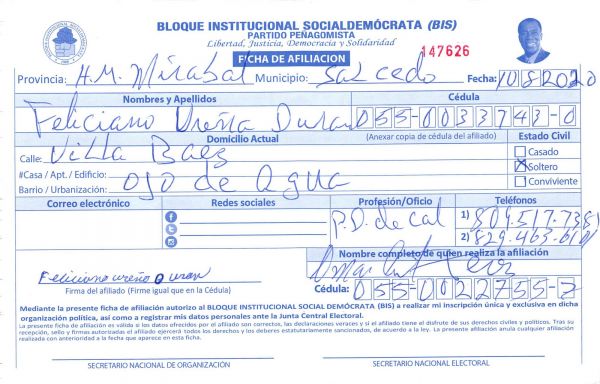 BLOQUE INSTITUCIONAL SOCIALDEMÓCRATA (BIS)
PARTIDO PEÑAGOMISTA
Libertad, Justicia, Democracia y Solidaridad
FICHA DE AFILIACION
147626
Provincia: H.M. Mirabal Municipio: Salcedo Fecha: 10/8/2020
Nombres y Apellidos Cédula
Feliciano Ureña Duran 055-0033743-0
Domicilio Actual (Anexar copia de cédula del afiliado) Estado Civil
Calle: Villa Baez
Casado
#Casa / Apt. / Edificio:
Soltero
Barrio / Urbanización: Ojo de Agua
Conviviente
Correo electrónico Redes sociales Profesión/Oficio Teléfonos
P.D. de Cal
1) 809.517.738
2) 829-463-
Nombre completo de quien realiza la afiliación
Feliciano ureño Duran
Firma del afiliado (Firme igual que en la Cédula)
Cédula: 055-0022755-7
Mediante la presente ficha de afiliación autorizo al BLOQUE INSTITUCIONAL SOCIAL DEMÓCRATA (BIS) a realizar mi inscripción única y exclusiva en dicha
organización política, así como a registrar mis datos personales ante la Junta Central Electoral.
La presente ficha de afiliación es válida si los datos ofrecidos por el afiliado son correctos, las declaraciones veraces y si el afiliado tiene el disfrute de sus derechos civiles y políticos. Tras su
recepción, sello y firmas autorizadas el afiliado ejercerá todos los derechos y los deberes estatutariamente sancionados, de acuerdo a la ley. La presente afiliación anula cualquier afiliación
realizada con anterioridad a la fecha que aparece en esta ficha.
SECRETARIO NACIONAL DE ORGANIZACIÓN SECRETARIO NACIONAL ELECTORAL